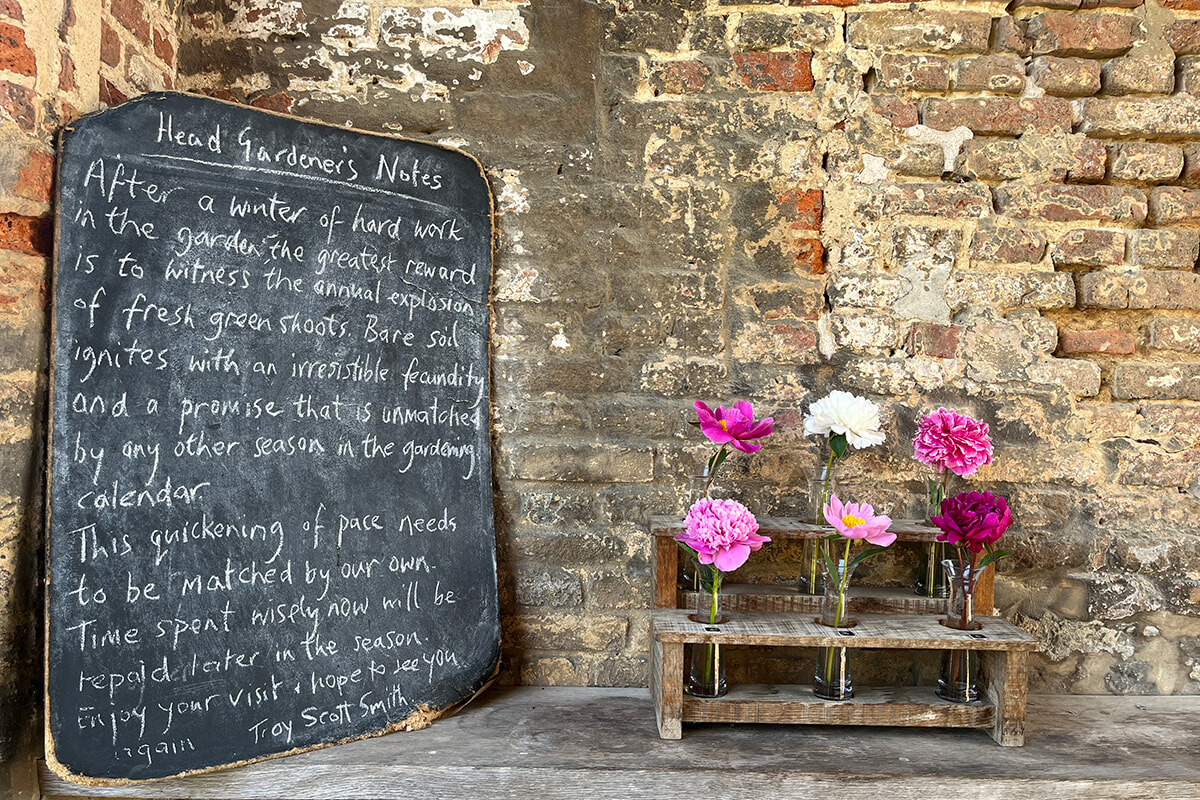 Head Gardener's Notes
After a winter of hard work
in the garden the greatest reward
is to witness the annual explosion
of fresh green shoots. Bare soil
ignites with an irresistible fecundity
and a promise that is unmatched
by any other season in the gardening
calendar.
This quickening of pace needs
to be matched by our own.
Time spent wisely now will be
repaid later in the season.
Enjoy your visit & hope to see you
again Troy Scott Smith